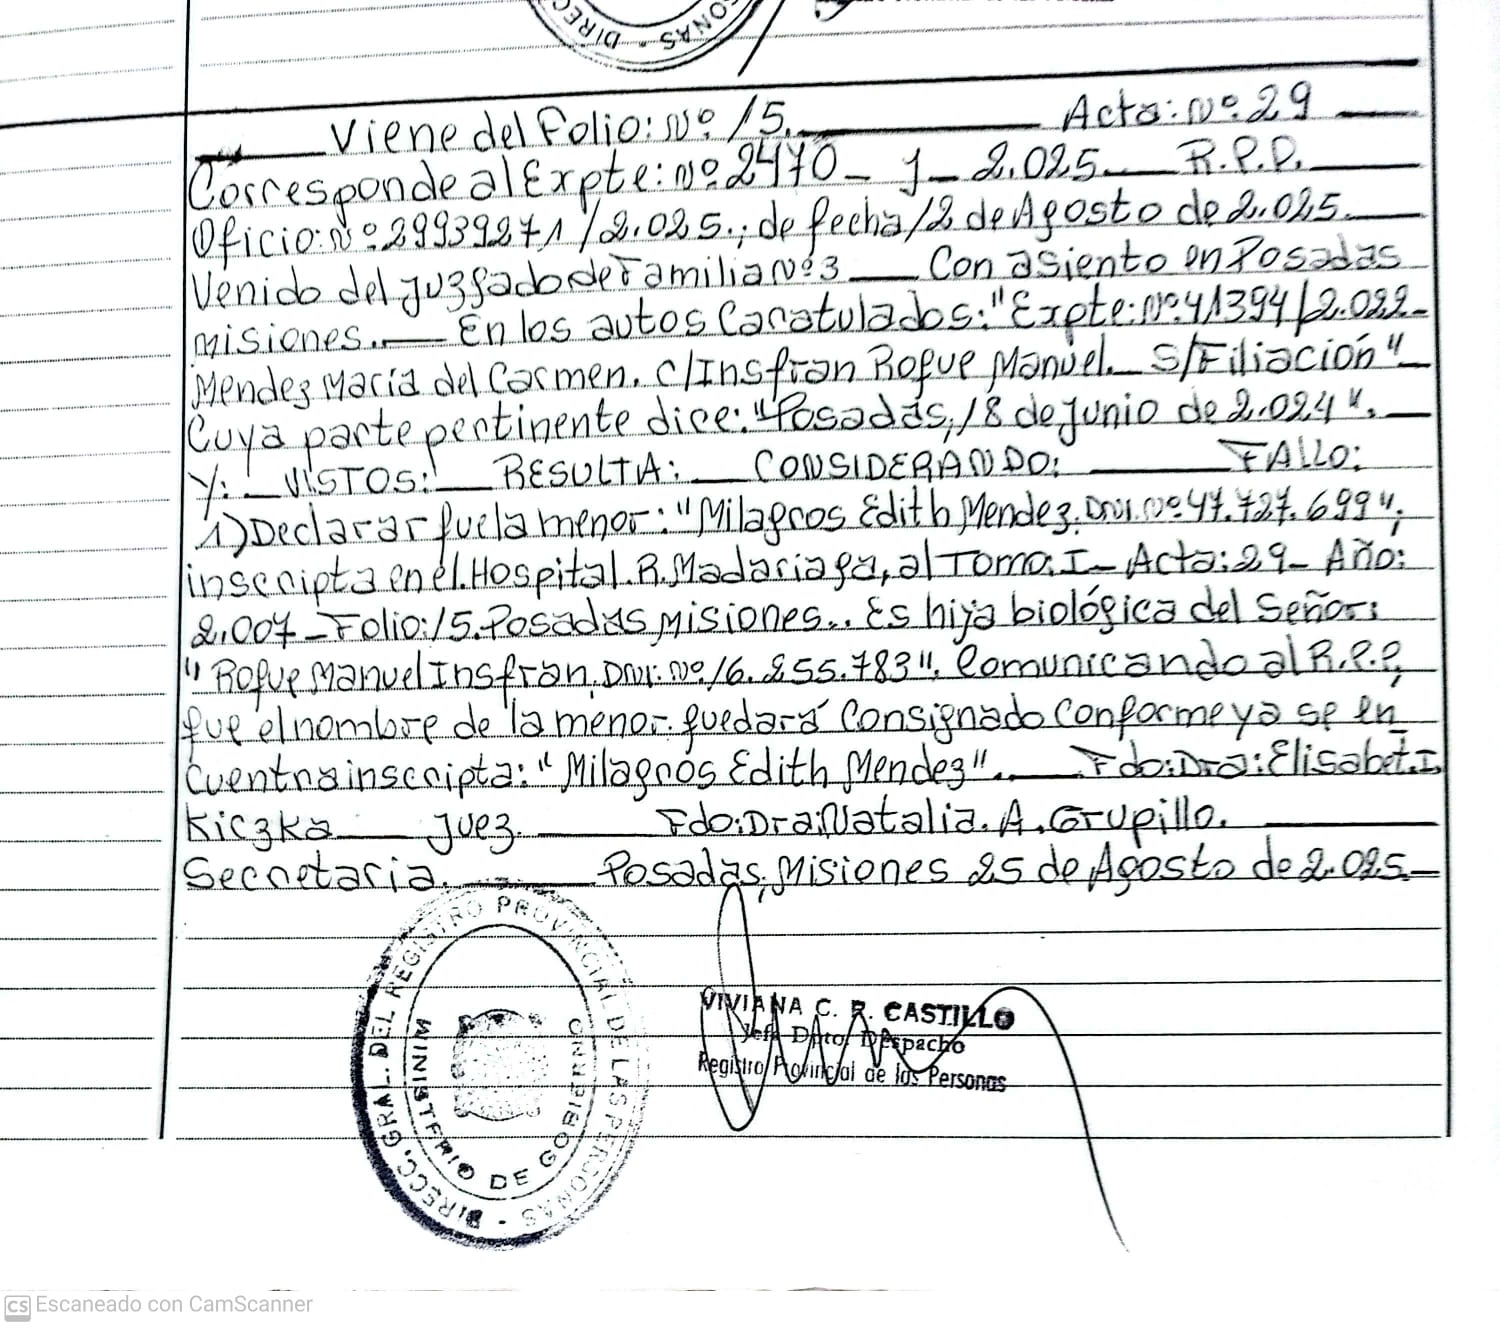 DIRECC
ONAS -
Viene del Folio: Nº 15. Acta: Nº 29
Corresponde al Expte: Nº 2470 - J - 2.025. R.P.P.
Oficio: Nº 29939271/2.025.; de fecha 12 de Agosto de 2.025.
Venido del Juzgado de Familia Nº 3 Con asiento en Posadas
Misiones. En los autos Caratulados: "Expte: Nº 41394/2.022-
Mendez María del Carmen. C/Insfran Roque Manuel. S/Filiación"
Cuya parte pertinente dice: "Posadas, 18 de Junio de 2.024".
Y: VISTOS: RESULTA: CONSIDERANDO: FALLO:
1) Declarar que la menor: "Milagros Edith Mendez. DNI. Nº 47.727.699",
inscripta en el Hospital. R. Madariaga, al Tomo: I - Acta: 29 - Año:
2.007 - Folio: 15. Posadas Misiones.. Es hija biológica del Señor:
"Roque Manuel Insfran. DNI. Nº 16.255.783". Comunicando al R.P.P,
que el nombre de la menor. quedará Consignado Conforme ya se en
cuentra inscripta: "Milagros Edith Mendez". Fdo: Dra: Elisabet. I.
Kiczka Juez. Fdo: Dra: Natalia. A. Grupillo.
Secretaria. Posadas, Misiones 25 de Agosto de 2.025.-
DIRECC. GRAL. DEL REGISTRO PROVINCIAL DE LAS PERSONAS -
MINISTERIO DE GOBIERNO
VIVIANA C. R. CASTILLO
Jefa Dpto. Despacho
Registro Provincial de las Personas
CS Escaneado con CamScanner